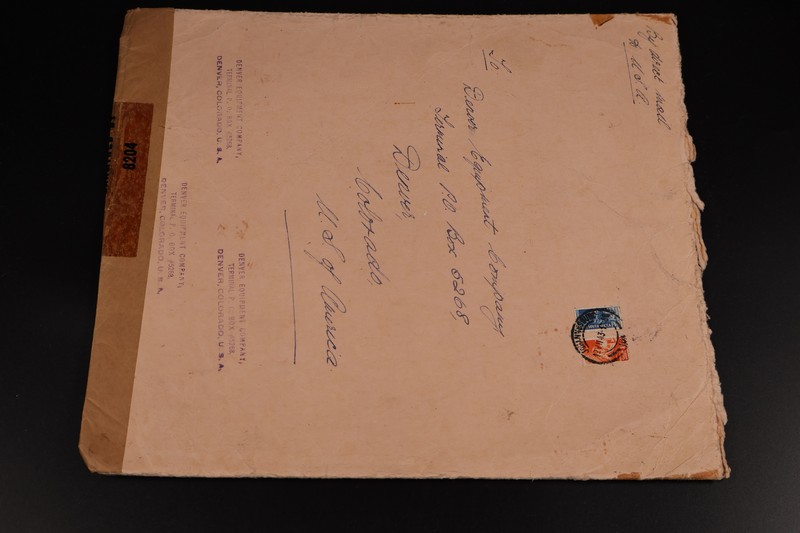 By direct mail
to U S A
To
Denver Equipment Company
Terminal P.O. Box 5268,
Denver,
Colorado,
U. S. of America.
DENVER EQUIPMENT COMPANY,
TERMINAL P. O. BOX #5268,
DENVER, COLORADO, U. S. A.
DENVER EQUIPMENT COMPANY,
TERMINAL P. O. BOX #5268,
DENVER, COLORADO, U. S. A.
DENVER EQUIPMENT COMPANY,
TERMINAL P. O. BOX #5268,
DENVER, COLORADO, U. S. A.
8204